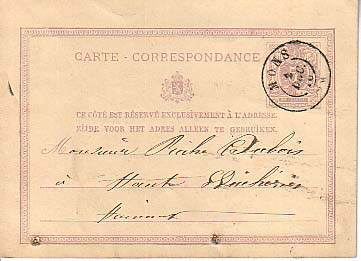 CARTE - CORRESPONDANCE
MONS
CE CÔTÉ EST RÉSERVÉ EXCLUSIVEMENT À L'ADRESSE.
ZIJDE VOOR HET ADRES ALLEEN TE GEBRUIKEN.
Monsieur Dubois
à Haute
Hainaut